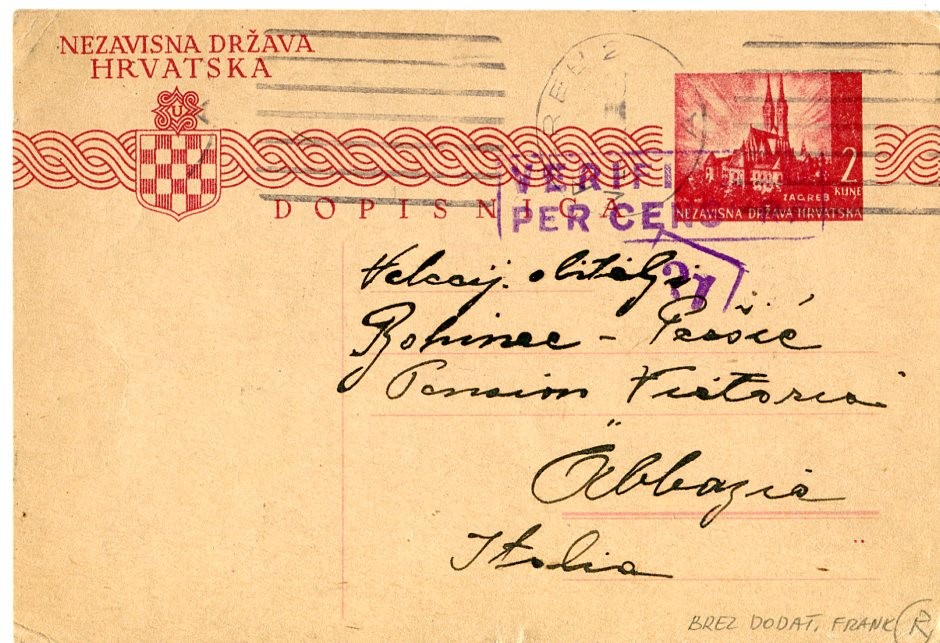 NEZAVISNA DRŽAVA
HRVATSKA
U
2
KUNE
ZAGREB
NEZAVISNA DRŽAVA HRVATSKA
DOPISNICA
VERIFI
PER CENS
31
obitelji
Bohinec - Peršić
Pension Victoria
Abbazia
Italia
BREZ DODAT. FRANK R